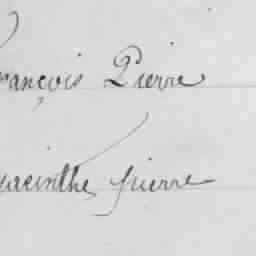 François Pierre
Hyacinthe Guerre